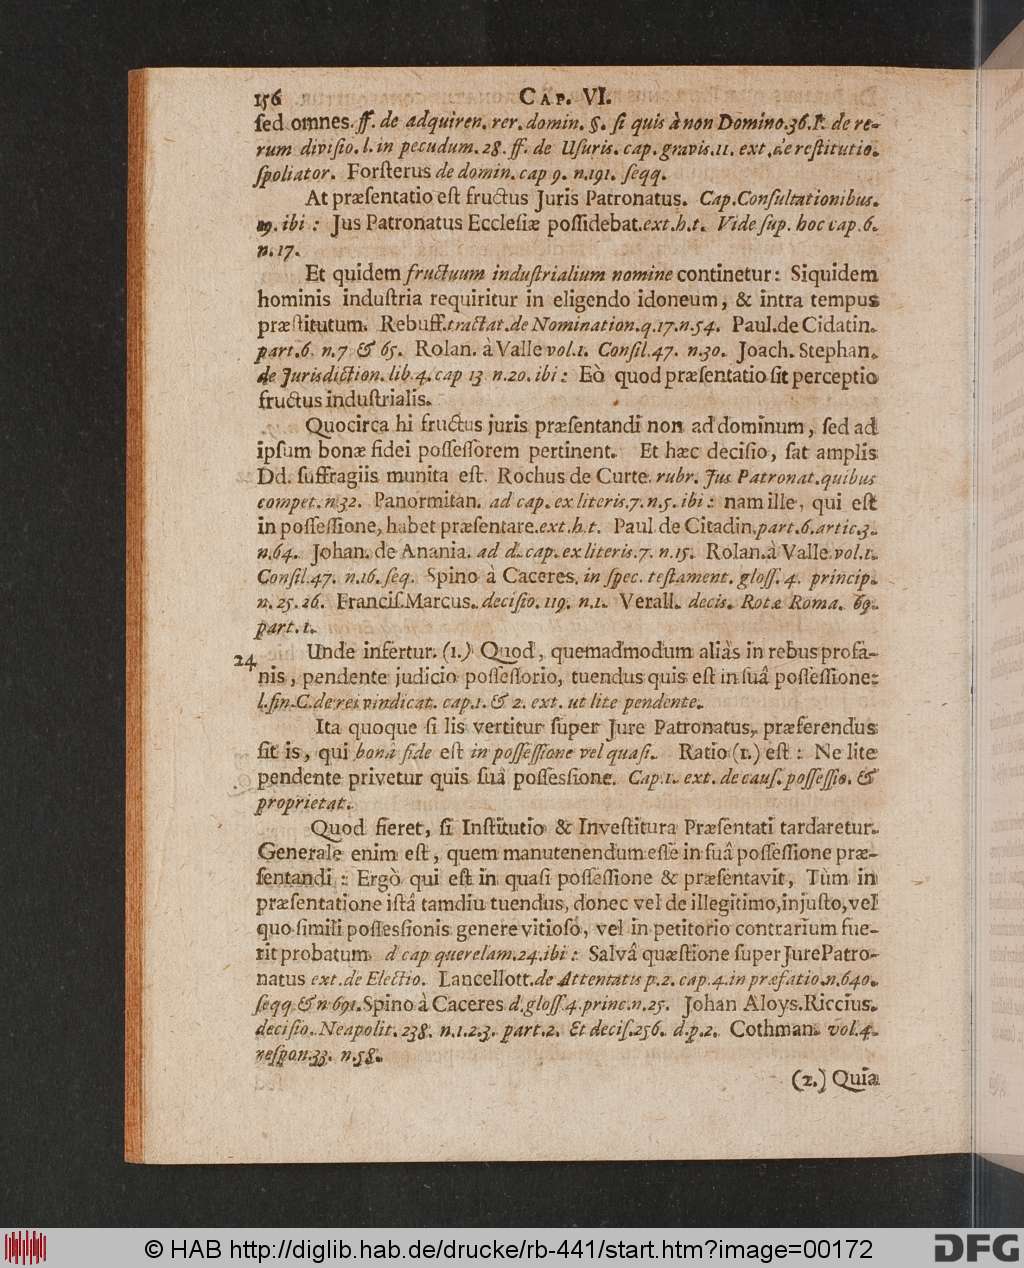 156 CAP. VI.
ſed omnes. ff. de adquiren. rer. domin. §. ſi quis à non Domino. 36. I. de re-
rum diviſio. l. in pecudum. 28. ff. de Uſuris. cap. gravis. 11. ext. de reſtitutio.
ſpoliator. Forſterus de domin. cap 9. n. 191. ſeqq.
At præſentatio eſt fructus Juris Patronatus. Cap. Conſultationibus.
19. ibi: Jus Patronatus Eccleſiæ poſſidebat. ext. h. t. Vide ſup. hoc cap. 6.
n. 17.
Et quidem fructuum induſtrialium nomine continetur: Siquidem
hominis induſtria requiritur in eligendo idoneum, & intra tempus
præſtitutum. Rebuff. tractat. de Nomination. q. 17. n. 54. Paul. de Cidatin.
part. 6. n. 7 & 65. Rolan. à Valle vol. 1. Conſil. 47. n. 30. Joach. Stephan.
de Jurisdiction. lib. 4. cap 13 n. 20. ibi: Eò quod præſentatio ſit perceptio
fructus induſtrialis.
Quocirca hi fructus juris præſentandi non ad dominum, ſed ad
ipſum bonæ fidei poſſeſſorem pertinent. Et hæc deciſio, ſat amplis
Dd. ſuffragiis munita eſt. Rochus de Curte. rubr. Jus Patronat. quibus
compet. n. 32. Panormitan. ad cap. ex literis. 7. n. 5. ibi: nam ille, qui eſt
in poſſeſſione, habet præſentare. ext. h. t. Paul de Citadin. part. 6. artic. 3.
n. 64. Johan. de Anania. ad d. cap. ex literis. 7. n. 15. Rolan. à Valle. vol. 1.
Conſil. 47. n. 16. ſeq. Spino à Caceres. in ſpec. teſtament. gloſſ. 4. princip.
n. 25. 26. Franciſ. Marcus. deciſio. 119. n. 1. Verall. decis. Rotæ Roma. 69.
part. 1.
24 Unde infertur. (1.) Quod, quemadmodum aliàs in rebus profa-
nis, pendente judicio poſſeſſorio, tuendus quis eſt in ſuâ poſſeſſione:
l. fin. C. de rei vindicat. cap. 1. & 2. ext. ut lite pendente.
Ita quoque ſi lis vertitur ſuper Jure Patronatus, præferendus
ſit is, qui bonâ fide eſt in poſſeſſione vel quaſi. Ratio (1.) eſt: Ne lite
pendente privetur quis ſuâ poſſesſione. Cap. 1. ext. de cauſ. poſſeſſio. &
proprietat.
Quod fieret, ſi Inſtitutio & Inveſtitura Præſentati tardaretur.
Generale enim eſt, quem manutenendum eſſe in ſuâ poſſeſſione præ-
ſentandi: Ergò qui eſt in quaſi poſſeſſione & præſentavit, Tùm in
præſentatione iſtâ tamdiu tuendus, donec vel de illegitimo, injuſto, vel
quo ſimili poſſesſionis genere vitioſo, vel in petitorio contrarium fue-
rit probatum. d cap querelam. 24. ibi: Salvâ quæſtione ſuper Jure Patro-
natus ext. de Electio. Lancellott. de Attentatis p. 2. cap. 4. in præfatio. n. 640.
ſeqq. & n 691. Spino à Caceres d. gloſſ. 4. princ. n. 25. Johan Aloys. Riccius.
deciſio. Neapolit. 238. n. 1. 2. 3. part. 2. Et deciſ. 256. d. p. 2. Cothman. vol. 4.
reſpon. 33. n. 58.
(2.) Quia
© HAB http://diglib.hab.de/drucke/rb-441/start.htm?image=00172 DFG